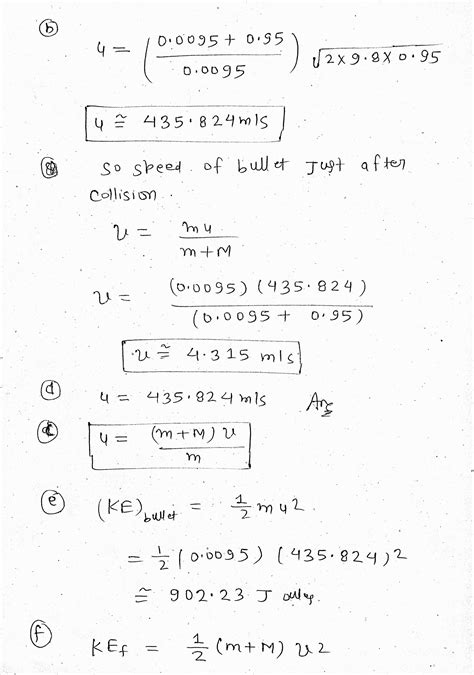 (b)
u = ( (0.0095 + 0.95) / 0.0095 ) √(2×9.8×0.95)
u ≅ 435.824 m/s
So speed of bullet Just after
collision.
v = mu / (m+M)
v = (0.0095) (435.824) / (0.0095 + 0.95)
v ≅ 4.315 m/s
(d) u = 435.824 m/s Ans
u = (m+M) v / m
(e) (KE)bullet = 1/2 mu2
= 1/2 (0.0095) (435.824)2
≅ 902.23 J
(f) KEf = 1/2 (m+M) v2